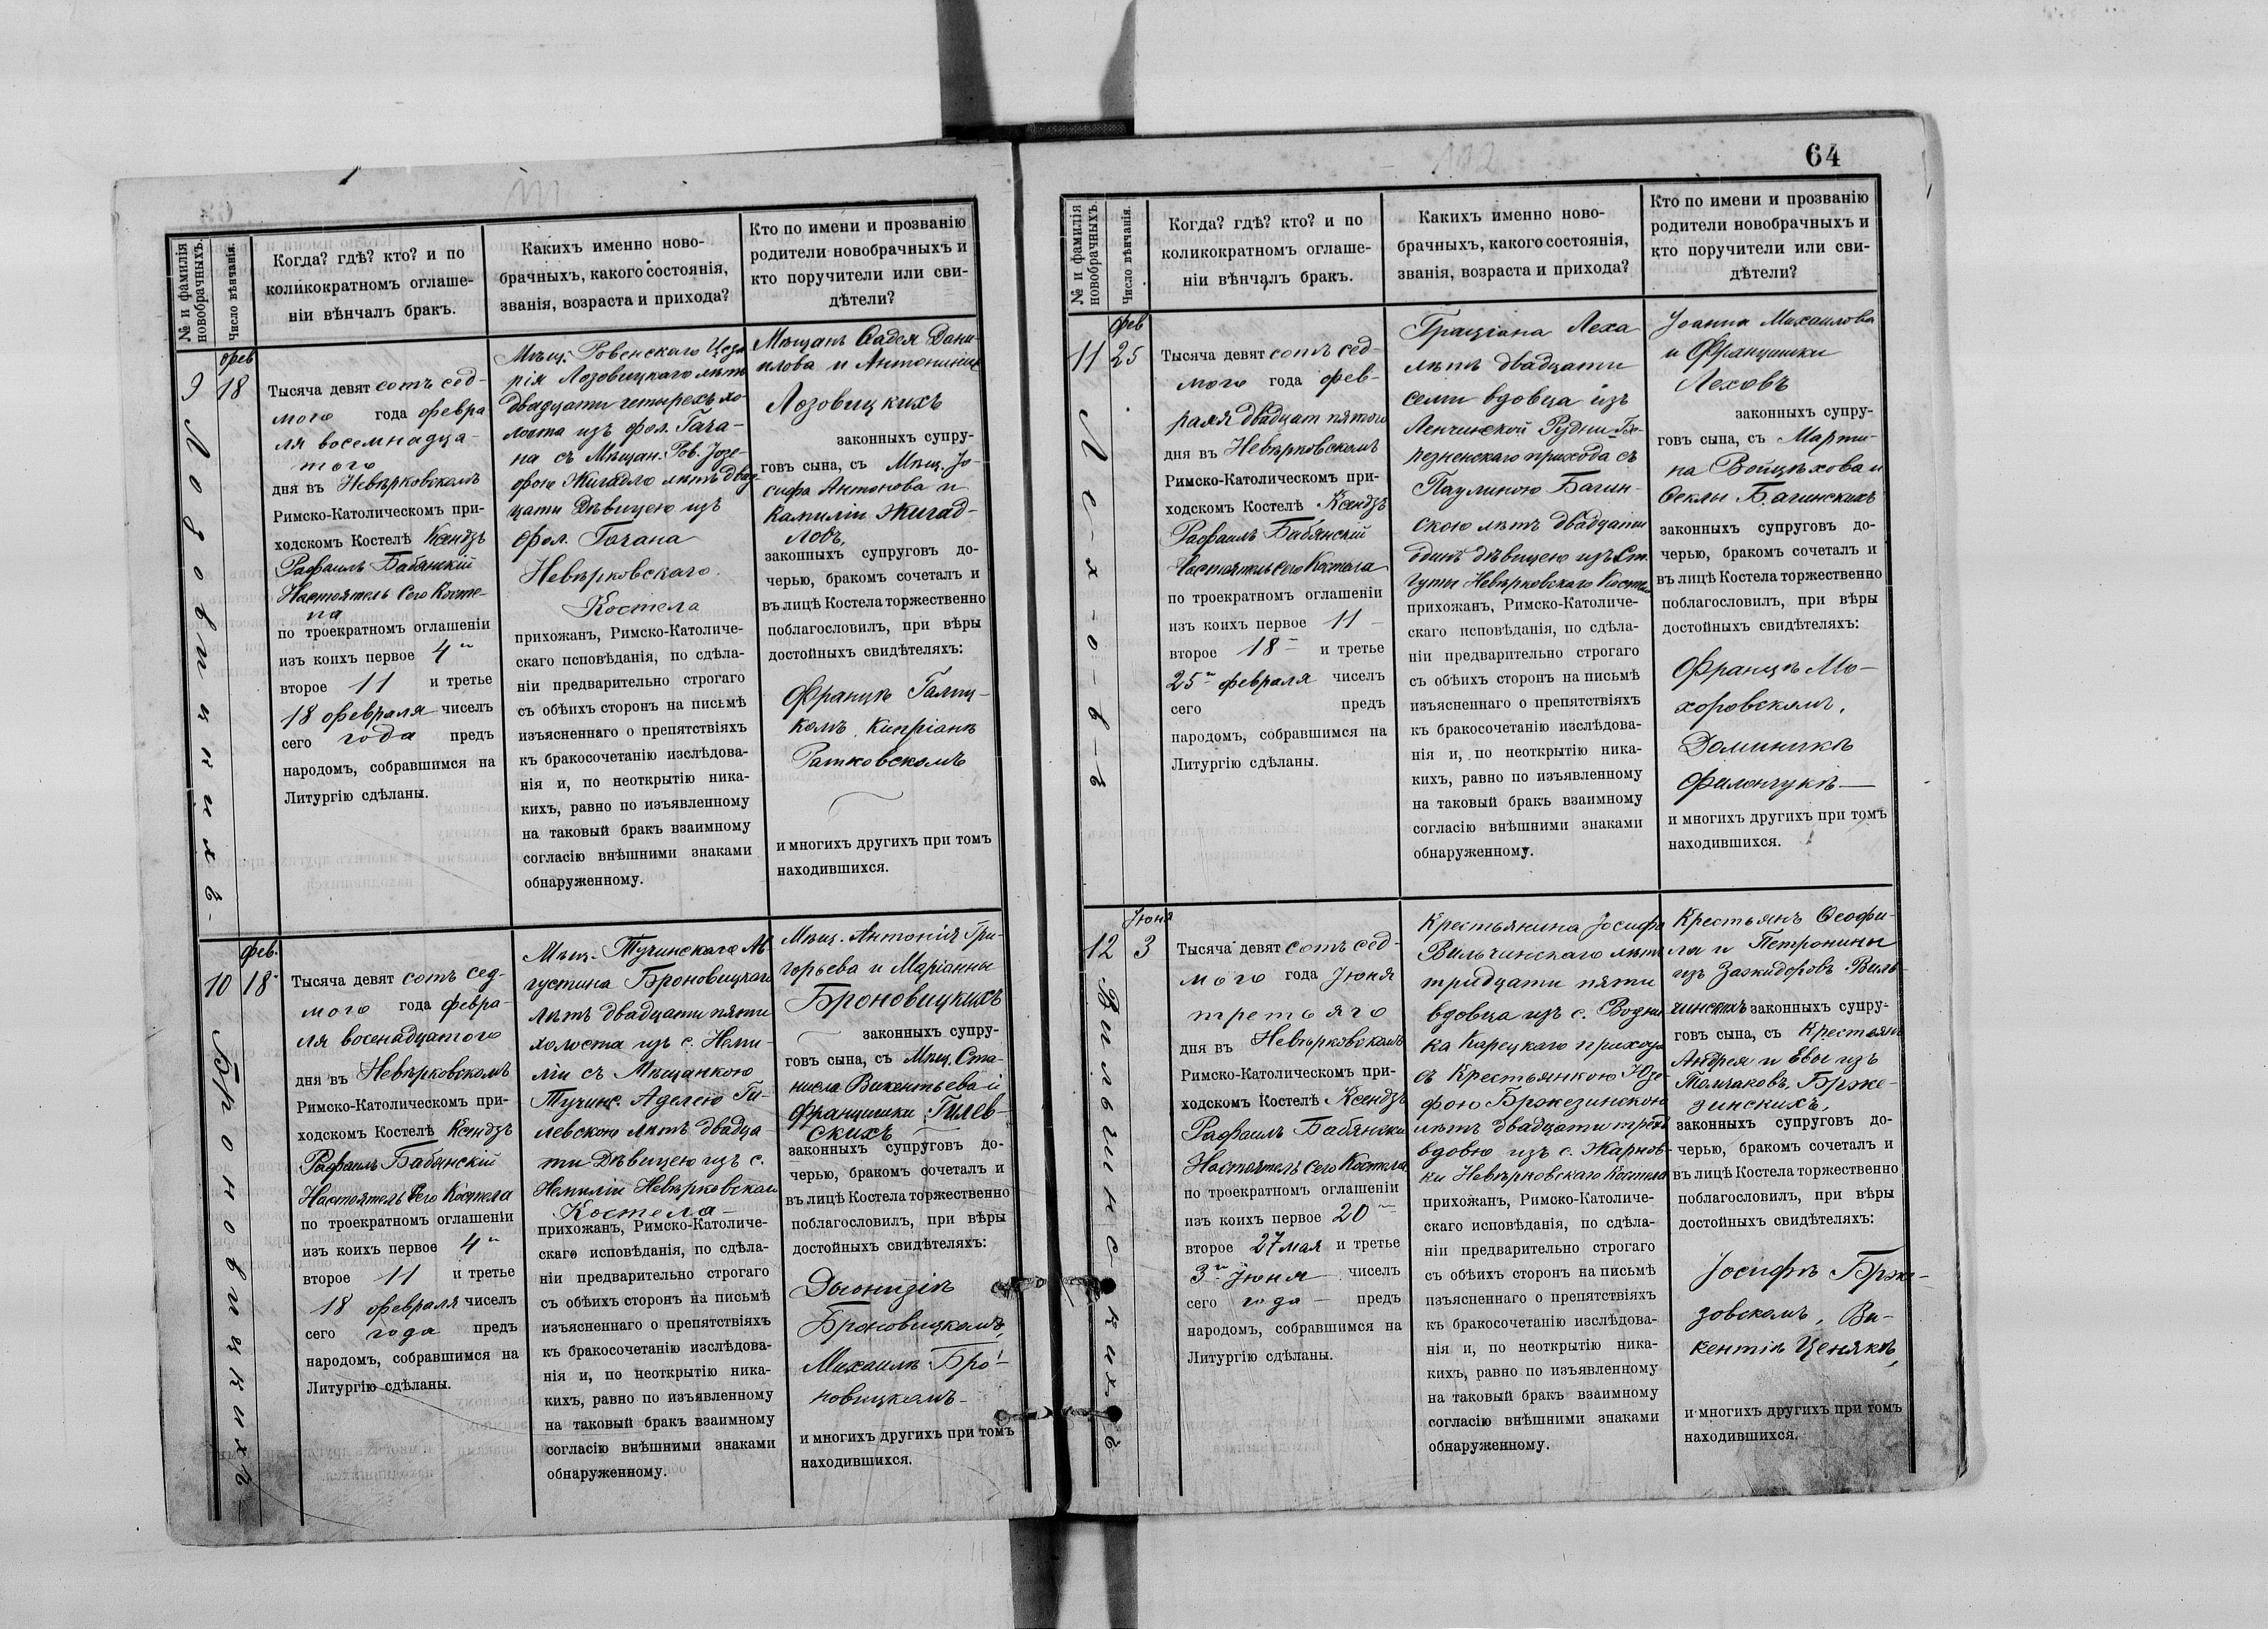 64
№ и фамилія новобрачныхъ.
Число вѣнчанія.
Когда? гдѣ? кто? и по
коликократномъ оглаше-
ніи вѣнчалъ бракъ.
Какихъ именно ново-
брачныхъ, какого состоянія,
званія, возраста и прихода?
Кто по имени и прозванію
родители новобрачныхъ и
кто поручители или сви-
дѣтели?
9
Лозовицкихъ
фев
18
Тысяча девят сотъ сед-
мого года февра
ля восемнадца-
того
дня въ Невѣрковскомъ
Римско-Католическомъ при-
ходскомъ Костелѣ Ксендзъ
Рафаилъ Бабянскій
Настоятель Сего Косте-
ла
по троекратномъ оглашеніи
изъ коихъ первое 4
второе 11 и третье
18 февраля чиселъ
сего года предъ
народомъ, собравшимся на
Литургію сдѣланы.
Мѣщ. Ровенскаго Цеза
рія Лозовицкаго лѣтъ
двадцати четырехъ хо-
лоста изъ фол. Гача-
на съ Мѣщан. Ров. Іозе-
фою Жигадло лѣтъ двад-
цати Дѣвицею изъ
фол. Гачана
Невѣрковскаго
Костела
прихожанъ, Римско-Католиче-
скаго исповѣданія, по сдѣла-
ніи предварительно строгаго
съ обѣихъ сторонъ на письмѣ
изъясненнаго о препятствіяхъ
къ бракосочетанію изслѣдова-
нія и, по неоткрытію ника-
кихъ, равно по изъявленному
на таковый бракъ взаимному
согласію внѣшними знаками
обнаруженному.
Мѣщанъ Фадея Дани-
илова и Антонины
Лозовицкихъ
законныхъ супру-
говъ сына, съ Мѣщ. Іо-
сифа Антонова и
Камиліи Жигад-
ловъ,
законныхъ супруговъ до-
черью, бракомъ сочеталъ и
въ лицѣ Костела торжественно
поблагословилъ, при вѣры
достойныхъ свидѣтеляхъ:
Францѣ Галиц-
комъ, Кипріанѣ
Ратковскомъ
и многихъ другихъ при томъ
находившихся.
10
Броновицкихъ
фев.
18
Тысяча девят сотъ сед-
мого года февра-
ля восенадцатого
дня въ Невѣрковскомъ
Римско-Католическомъ при-
ходскомъ Костелѣ Ксендзъ
Рафаилъ Бабянскій
Настоятель Сего Костела
по троекратномъ оглашеніи
изъ коихъ первое 4
второе 11 и третье
18 февраля чиселъ
сего года предъ
народомъ, собравшимся на
Литургію сдѣланы.
Мѣщ. Тучинскаго Ав
густина Броновицкаго
лѣтъ двадцати пяти
холоста изъ с. Неми-
ліи съ Мѣщанкою
Тучинс. Аделею Ги-
левскою лѣтъ двадца
ти Дѣвицею изъ с.
Немиліи Невѣрковскаго
Костела
прихожанъ, Римско-Католиче-
скаго исповѣданія, по сдѣла-
ніи предварительно строгаго
съ обѣихъ сторонъ на письмѣ
изъясненнаго о препятствіяхъ
къ бракосочетанію изслѣдова-
нія и, по неоткрытію ника-
кихъ, равно по изъявленному
на таковый бракъ взаимному
согласію внѣшними знаками
обнаруженному.
Мѣщ. Антонія Гри-
горьева и Маріанны
Броновицкихъ
законныхъ супру-
говъ сына, съ Мѣщ. Ста-
нисла Викентьева и
Францишки Гилев-
скихъ
законныхъ супруговъ до-
черью, бракомъ сочеталъ и
въ лицѣ Костела торжественно
поблагословилъ, при вѣры
достойныхъ свидѣтеляхъ:
Діонизіѣ
Броновицкомъ,
Михаилѣ Бро-
новицкомъ
и многихъ другихъ при томъ
находившихся.
№ и фамилія новобрачныхъ.
Число вѣнчанія.
Когда? гдѣ? кто? и по
коликократномъ оглаше-
ніи вѣнчалъ бракъ.
Какихъ именно ново-
брачныхъ, какого состоянія,
званія, возраста и прихода?
Кто по имени и прозванію
родители новобрачныхъ и
кто поручители или сви-
дѣтели?
11
Леховъ
фев
25
Тысяча девят сотъ сед-
мого года фев-
раля двадцат пятого
дня въ Невѣрковскомъ
Римско-Католическомъ при-
ходскомъ Костелѣ Ксендзъ
Рафаилъ Бабянскій
Настоятель Сего Костела
по троекратномъ оглашеніи
изъ коихъ первое 11
второе 18 и третье
25 февраля чиселъ
сего предъ
народомъ, собравшимся на
Литургію сдѣланы.
Граціана Леха
лѣтъ двадцати
семи вдовца изъ
Ленчинской Рудни Бе-
резненскаго прихода съ
Паулиною Багин-
скою лѣтъ двадцати
одинъ дѣвицею изъ Ст.
Гуты Невѣрковскаго Костела
прихожанъ, Римско-Католиче-
скаго исповѣданія, по сдѣла-
ніи предварительно строгаго
съ обѣихъ сторонъ на письмѣ
изъясненнаго о препятствіяхъ
къ бракосочетанію изслѣдова-
нія и, по неоткрытію ника-
кихъ, равно по изъявленному
на таковый бракъ взаимному
согласію внѣшними знаками
обнаруженному.
Іоанна Михаилова
и Францишки
Леховъ
законныхъ супру-
говъ сына, съ Марти-
на Войцѣхова и
Феклы Багинскихъ
законныхъ супруговъ до-
черью, бракомъ сочеталъ и
въ лицѣ Костела торжественно
поблагословилъ, при вѣры
достойныхъ свидѣтеляхъ:
Францѣ Мо-
хоровскомъ,
Доминикѣ
Филончукѣ
и многихъ другихъ при томъ
находившихся.
12
Вильчинскихъ
Іюня
3
Тысяча девят сотъ сед-
мого года Іюня
третьяго
дня въ Невѣрковскомъ
Римско-Католическомъ при-
ходскомъ Костелѣ Ксендзъ
Рафаилъ Бабянскій
Настоятель Сего Костела
по троекратномъ оглашеніи
изъ коихъ первое 20
второе 27 мая и третье
3 Іюня чиселъ
сего года предъ
народомъ, собравшимся на
Литургію сдѣланы.
Крестьянина Іосифа
Вильчинскаго лѣтъ
тридцати пяти
вдовца изъ с. Водни
ка Корецкаго прихода
съ Крестьянкою Юзе-
фою Бржезинскою
лѣтъ двадцати трехъ
вдовою изъ с. Жарнов-
ки Невѣрковскаго Костела
прихожанъ, Римско-Католиче-
скаго исповѣданія, по сдѣла-
ніи предварительно строгаго
съ обѣихъ сторонъ на письмѣ
изъясненнаго о препятствіяхъ
къ бракосочетанію изслѣдова-
нія и, по неоткрытію ника-
кихъ, равно по изъявленному
на таковый бракъ взаимному
согласію внѣшними знаками
обнаруженному.
Крестьянъ Феофи-
ла и Петронины
изъ Виль-
чинскихъ законныхъ супру-
говъ сына, съ Крестьянъ
Андрея и Евы изъ
Толчаковъ, Брже-
зинскихъ,
законныхъ супруговъ до-
черью, бракомъ сочеталъ и
въ лицѣ Костела торжественно
поблагословилъ, при вѣры
достойныхъ свидѣтеляхъ:
Іосифѣ Брже-
зовскомъ, Ви-
кентіѣ Ценякѣ,
и многихъ другихъ при томъ
находившихся.